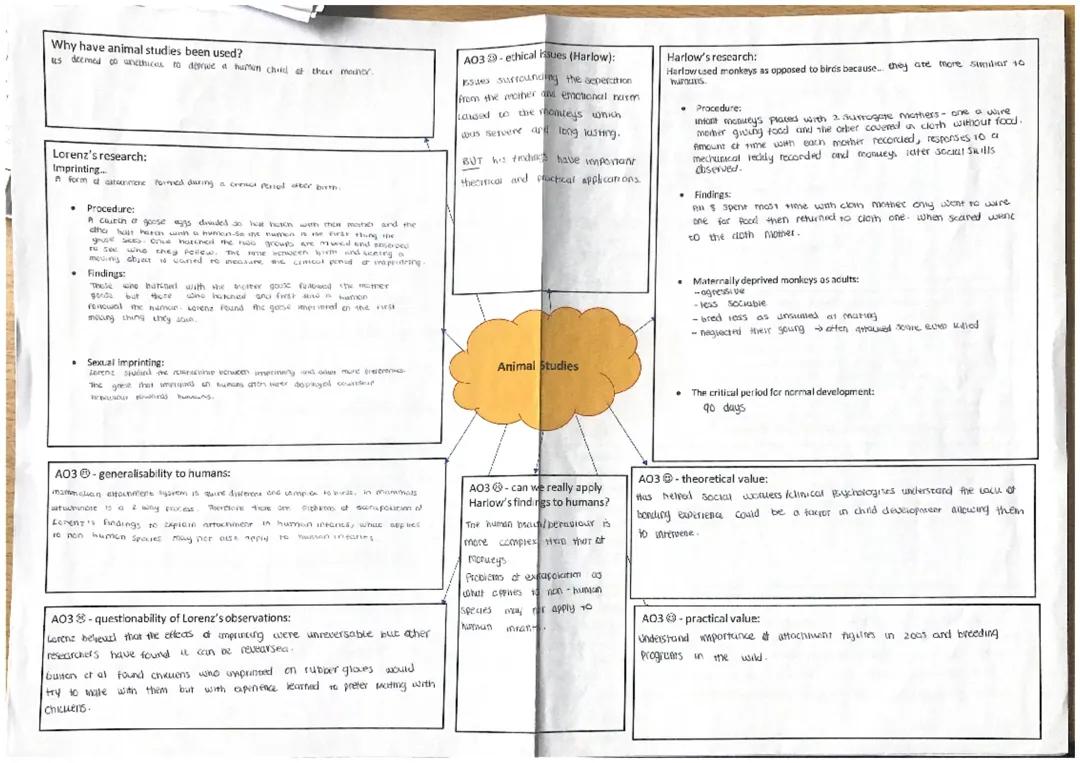 Why have animal studies been used?
its deemed so unethical to deprive a human child of their mother.
Lorenz's research:
Imprinting...
A form of attachment formed during a critical period after birth.
• Procedure:
A clutch of goose eggs divided so half hatch with their mother and the
other half hatch with a human so the human is the first thing the
goose sees. Once hatched the two groups are mixed and observed
to see who they follow. The time between birth and seeing a
moving object is varied to measure the critical period of imprinting.
• Findings:
Those who hatched with the mother goose followed the mother
goose but those who hatched and first saw a human
followed the human. Lorenz found the goose imprinted on the first
moving thing they saw.
• Sexual imprinting:
Lorenz studied the relationship between imprinting and adult mate preferences.
The geese that imprinted on humans often later displayed courtship
behaviour towards humans.
AO3 ☹ - generalisability to humans:
mammalian attachment system is quite different and complex to birds. In mammals
attachment is a 2 way process. Therefore there are problems of extrapolation of
Lorenz's findings to explain attachment in human infants, what applies
to non human species may not also apply to human infants.
AO3 ☹ - questionability of Lorenz's observations:
Lorenz believed that the effects of imprinting were unreversable but other
researchers have found it can be reversed.
Guiton et al found chickens who imprinted on rubber gloves would
try to mate with them but with experience learned to prefer mating with
chickens.
AO3 ☹ - ethical issues (Harlow):
Issues surrounding the seperation
from the mother and emotional harm
caused to the monkeys which
was servere and long lasting.
BUT his findings have important
theoritical and practical applications.
Animal Studies
AO3 ☹ - can we really apply
Harlow's findings to humans?
The human brain/behaviour is
more complex than that of
monkeys.
Problems of extrapolation as
what applies to non-human
species may not apply to
human infants.
Harlow's research:
Harlow used monkeys as opposed to birds because... they are more similar to
humans.
• Procedure:
infant monkeys placed with 2 surrogate mothers - one a wire
mother giving food and the other covered in cloth without food.
Amount of time with each mother recorded, responses to a
mechanical teddy recorded and monkeys later social skills
observed.
• Findings:
All 8 spent most time with cloth mother only went to wire
one for food then returned to cloth one. When scared went
to the cloth mother.
• Maternally deprived monkeys as adults:
- agressive
- less sociable
- bred less as unskilled at mating
- neglected their young → often attacked some even killed
• The critical period for normal development:
90 days
AO3 ☺ - theoretical value:
Has helped social workers/clinical psychologists understand the lack of
bonding experience could be a factor in child development allowing them
to intervene.
AO3 ☺ - practical value:
Understand importance of attachment figures in zoos and breeding
programs in the wild.